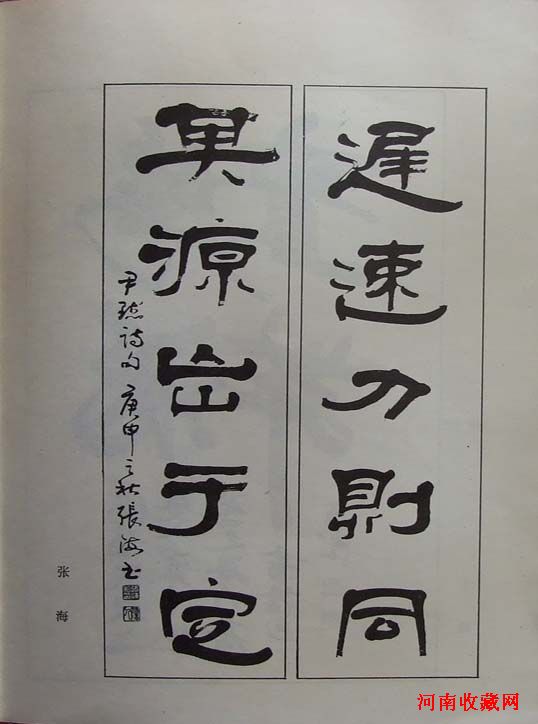 遲速力則同
其源出于定
尹默詩句 庚申之秋張海书
张海
河南收藏网